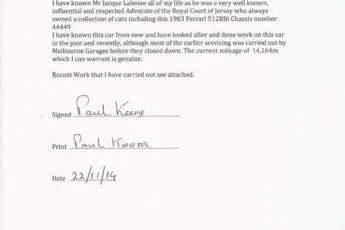 I have known Mr Jacque Labesse all of my life as he was a very well known,
influential and respected Advocate of the Royal Court of Jersey who always
owned a collection of cars including this 1983 Ferrari 512BBi Chassis number:
44449
I have known this car from new and have looked after and done work on this car
in the past and recently, although most of the earlier servicing was carried out by
Melbourne Garages before they closed down. The current mileage of 14,164m
which I can warrant is genuine.
Recent Work that I have carried out see attached.
Signed Paul Keens
Print Paul Keens
Date 22/11/14